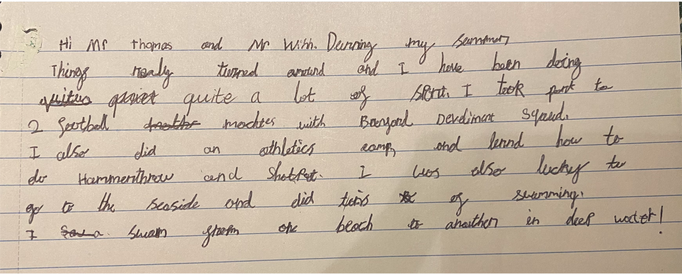 Hi Mr Thomas and Mr With. Durring my summer
Things really turned around and I have been doing
quite a lot of sport. I took part to
2 football matches with Develiment Squad.
I also did an athletics camp and lernd how to
do Hammerthrow and Shotput. I was also lucky to
go to the seaside and did of swimming.
I swam from one beach to anouther in deep water!